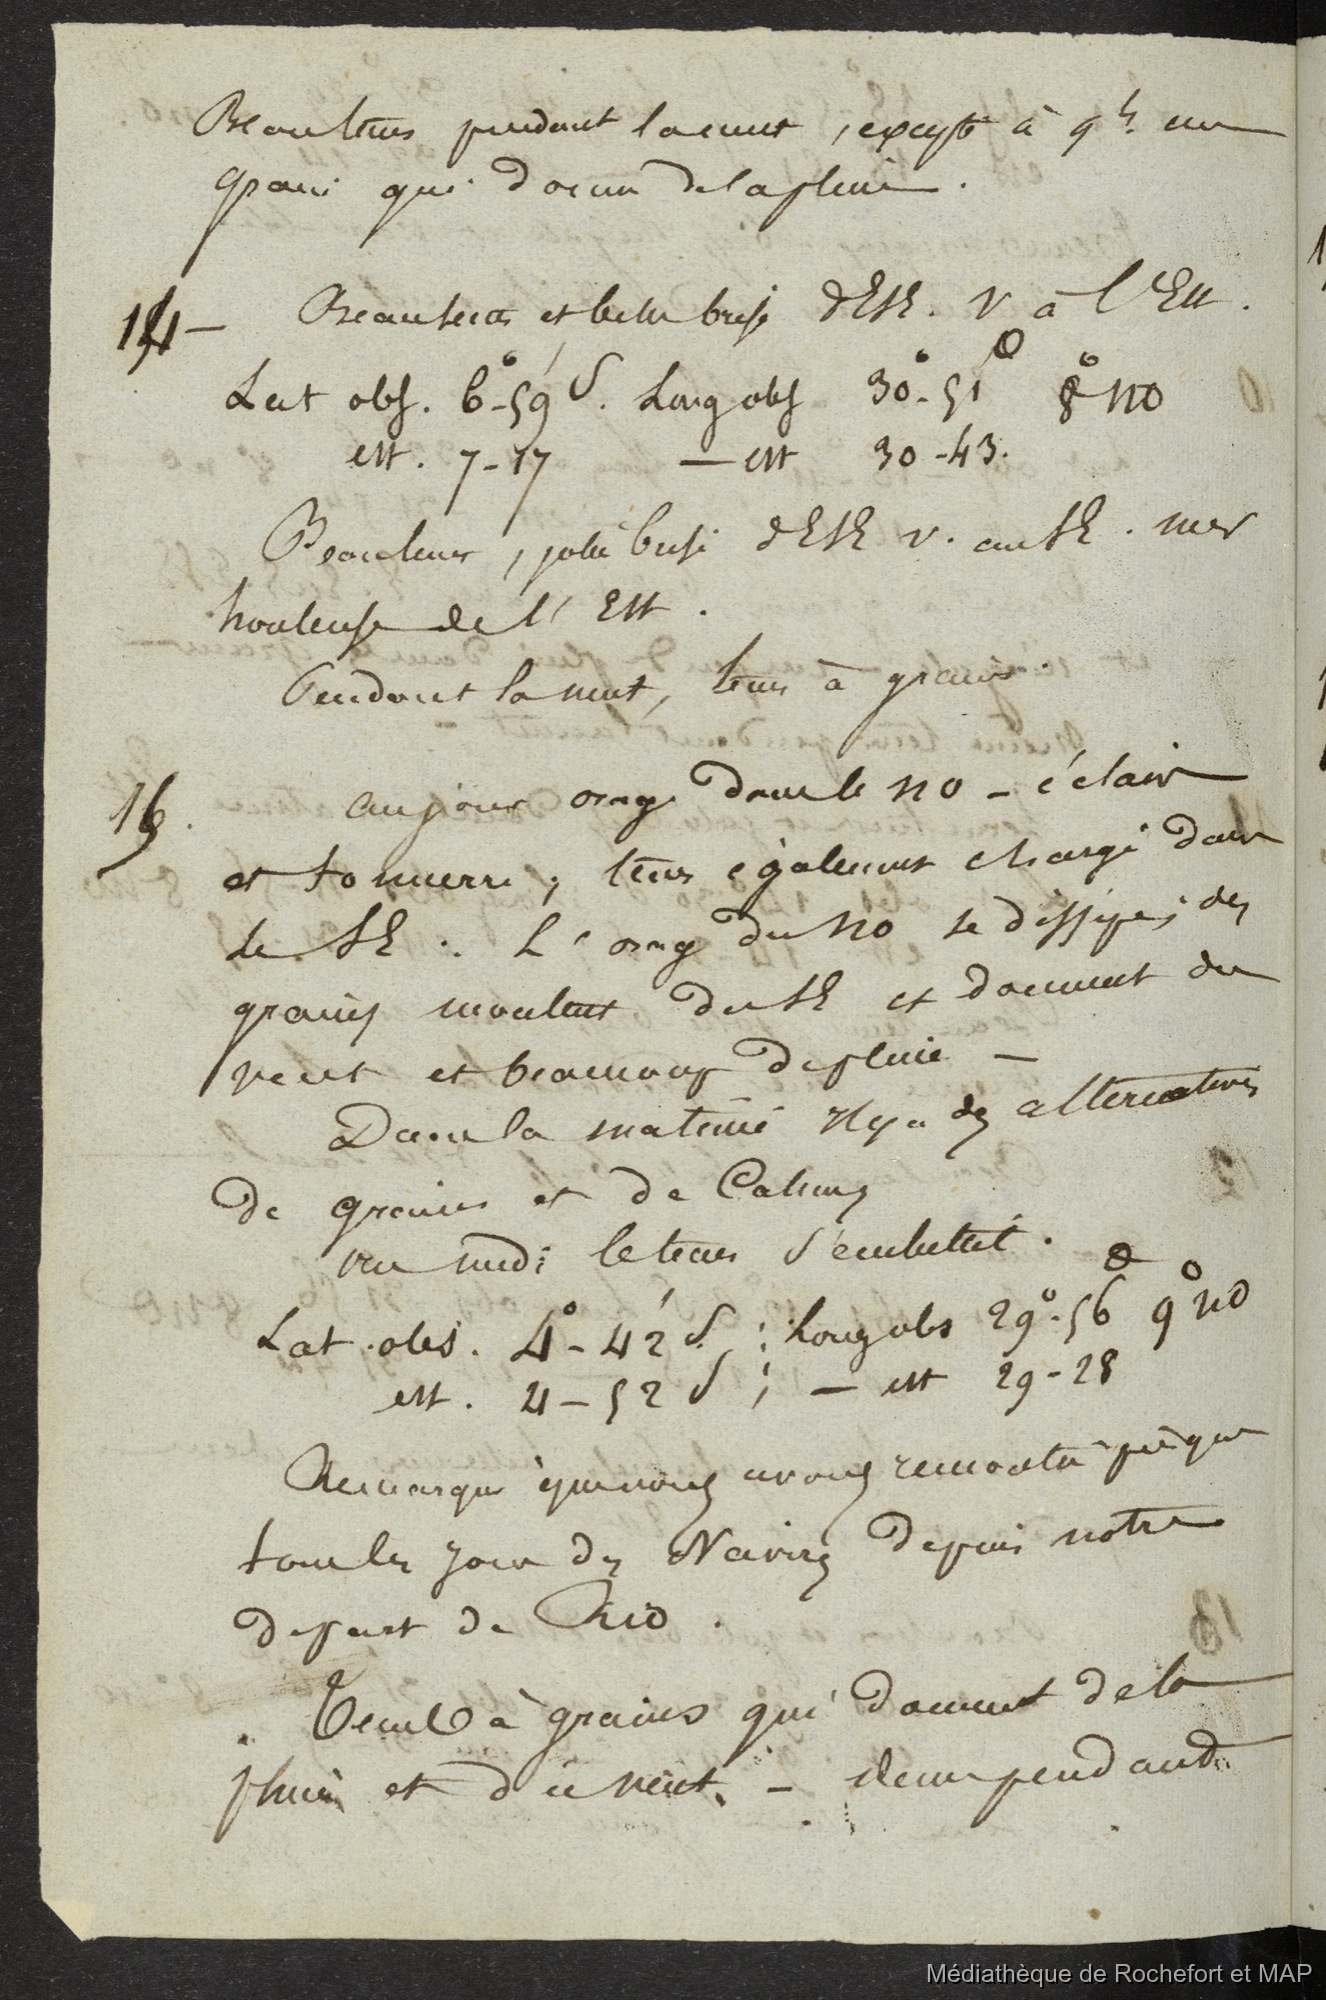 Beau tems pendant la nuit, excepté à 9h. un
grain qui donna de la pluie.
14 - Beau tems et belle brise d'ESE. V à l'Est.
Lat obs. 6°-59' S. Long obs 30°-51' O 8° NO
est. 7-17 — est 30-43.
Beau tems, jolie brise d'ESE V. au SE. mer
houleuse de l'Est.
Pendant la nuit, tems à grains.
15. au jour orage dans le NO - éclair
et tonnerre; tems également chargé dans
le SE. L'orage du NO se dissipe; des
grains montent du SE et donnent du
vent et beaucoup de pluie —
Dans la matinée il y a des alternatives
de grains et de Calmes
vers midi le tems s'embellit.
Lat. obs. 4°-42' S. ; Long obs 29°-56' O 9° NO
est. 4-52 S ; — est 29-28
Remarqué que nous avons remonté presque
tous les jours des Navires depuis notre
depart de Rio.
Tems à grains qui donnent de la
pluie et du vent. - idem pendant
Médiathèque de Rochefort et MAP